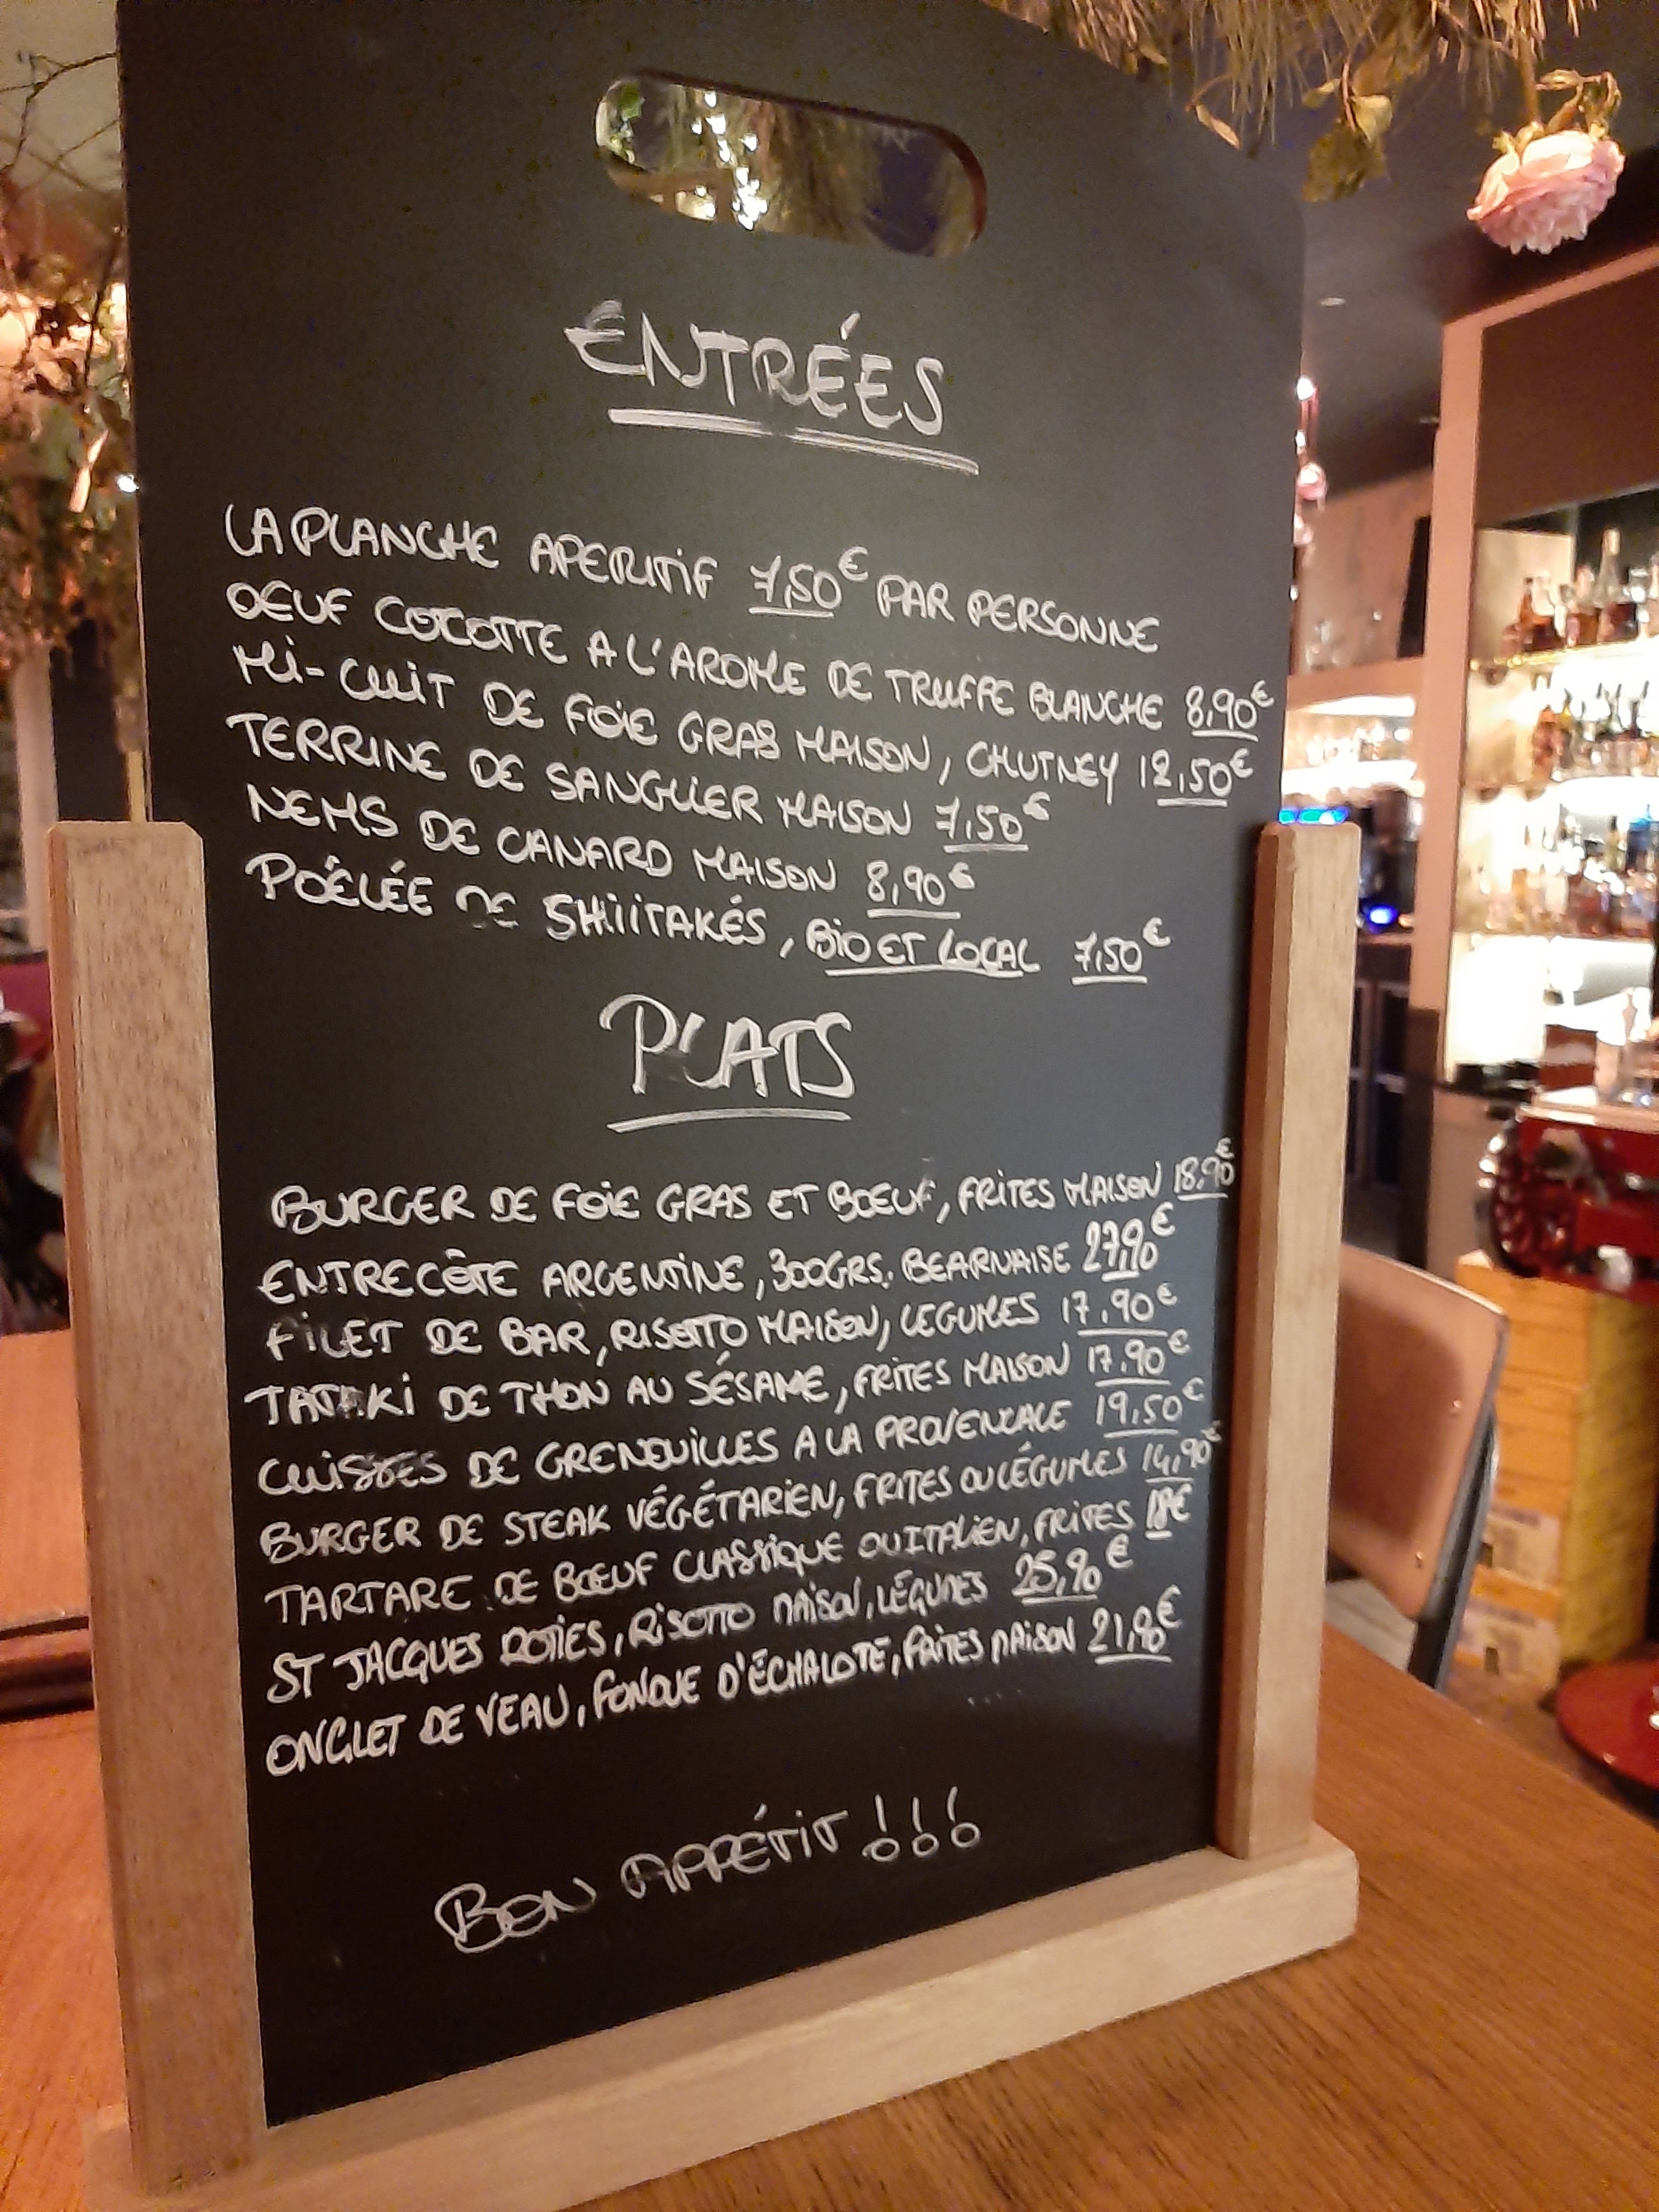 ENTRÉES
LA PLANCHE APERITIF 7,50€ PAR PERSONNE
OEUF COCOTTE A L'AROME DE TRUFFE BLANCHE 8,90€
MI-CUIT DE FOIE GRAS MAISON, CHUTNEY 12,50€
TERRINE DE SANGLIER MAISON 7,50€
NEMS DE CANARD MAISON 8,90€
POÊLÉE DE SHIITAKÉS, BIO ET LOCAL 7,50€
PLATS
BURGER DE FOIE GRAS ET BŒUF, FRITES MAISON 18,90€
ENTRECÔTE ARGENTINE, 300GRS. BEARNAISE 27,90€
FILET DE BAR, RISOTTO MAISON, LEGUMES 17.90€
TATAKI DE THON AU SÉSAME, FRITES MAISON 17.90€
CUISSES DE GRENOUILLES A LA PROVENCALE 19,50€
BURGER DE STEAK VÉGÉTARIEN, FRITES OU LÉGUMES 14,90€
TARTARE DE BŒUF CLASSIQUE OU ITALIEN, FRITES 18€
ST JACQUES ROTIES, RISOTTO MAISON, LÉGUMES 25,90€
ONGLET DE VEAU, FONDUE D'ÉCHALOTE, FRITES MAISON 21,90€
BON APPÉTIT !!!